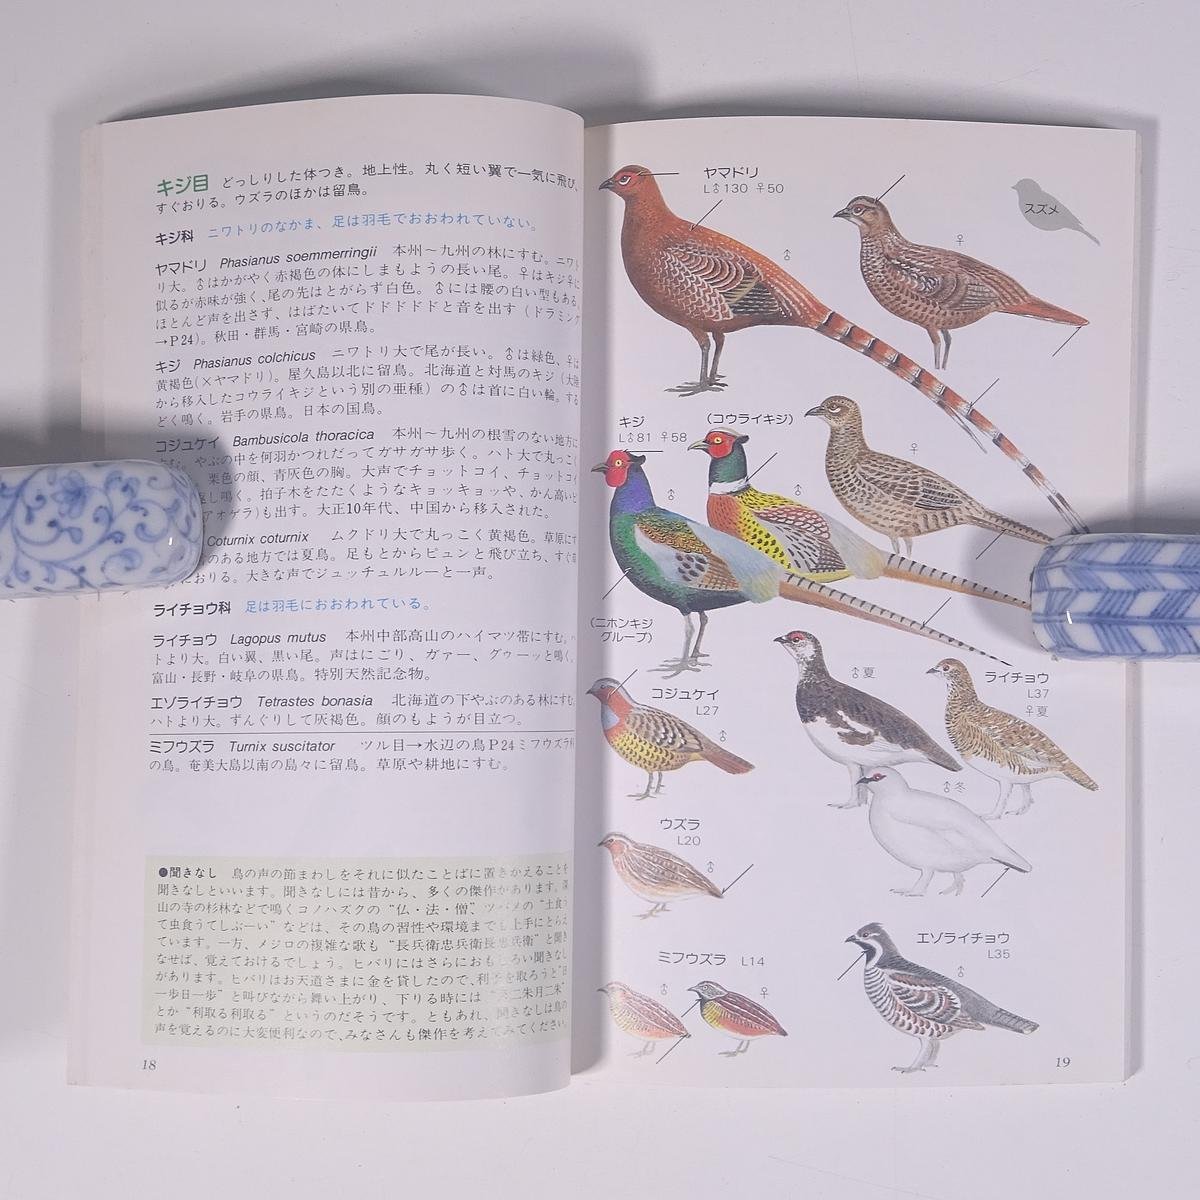 キジ目 どっしりした体つき。地上性。丸く短い翼で一気に飛び、
すぐおりる。ウズラのほかは留鳥。
キジ科 ニワトリのなかま、足は羽毛でおおわれていない。
ヤマドリ Phasianus soemmerringii 本州〜九州の林にすむ。ニワト
リ大。♂はかがやく赤褐色の体にしまもようの長い尾。♀はキジ♀に
似るが赤味が強く、尾の先はとがらず白色。♂には腰の白い型もある。
ほとんど声を出さず、はばたいてドドドドドと音を出す（ドラミング
→P24）。秋田・群馬・宮崎の県鳥。
キジ Phasianus colchicus ニワトリ大で尾が長い。♂は緑色、♀は
黄褐色(×ヤマドリ)。屋久島以北に留鳥。北海道と対馬のキジ（大陸
から移入したコウライキジという別の亜種）の♂は首に白い輪。する
どく鳴く。岩手の県鳥。日本の国鳥。
コジュケイ Bambusicola thoracica 本州〜九州の根雪のない地方に
すむ。やぶの中を何羽かつれだってガサガサ歩く。ハト大で丸っこく
栗色の顔、青灰色の胸。大声でチョットコイ、チョットコイ
返し鳴く。拍子木をたたくようなキョッキョッや、かん高いピ
アオゲラ)も出す。大正10年代、中国から移入された。
Coturnix coturnix ムクドリ大で丸っこく黄褐色。草原にす
のある地方では夏鳥。足もとからピュンと飛び立ち、すぐ草
におりる。大きな声でジュッチュルルーと一声。
ライチョウ科 足は羽毛におおわれている。
ライチョウ Lagopus mutus 本州中部高山のハイマツ帯にすむ。ハ
トより大。白い翼、黒い尾。声はにごり、ガァー、グゥーッと鳴く。
富山・長野・岐阜の県鳥。特別天然記念物。
エゾライチョウ Tetrastes bonasia 北海道の下やぶのある林にすむ。
ハトより大。ずんぐりして灰褐色。顔のもようが目立つ。
ミフウズラ Turnix suscitator ツル目→水辺の鳥P24ミフウズラ科
の鳥。奄美大島以南の島々に留鳥。草原や耕地にすむ。
●聞きなし 鳥の声の節まわしをそれに似たことばに置きかえることを
聞きなしといいます。聞きなしには昔から、多くの傑作があります。深
山の寺の杉林などで鳴くコノハズクの“仏・法・僧”、ツバメの“土食う
て虫食うてしぶーい”などは、その鳥の習性や環境までも上手にとらえ
ています。一方、メジロの複雑な歌も“長兵衛忠兵衛長忠兵衛”と聞き
なせば、覚えておけるでしょう。ヒバリにはさらにおもしろい聞きなし
があります。ヒバリはお天道さまに金を貸したので、利子を取ろうと“日
一歩日一歩”と叫びながら舞い上がり、下りる時には“月二朱月二朱”
とか“利取る利取る”というのだそうです。ともあれ、聞きなしは鳥の
声を覚えるのに大変便利なので、みなさんも傑作を考えてみてください。
18
ヤマドリ
L♂130 ♀50
♂
♀
スズメ
キジ
L♂81 ♀58
(コウライキジ)
♂
♂
♀
(ニホンキジ
グループ)
コジュケイ
L27
♂
♂夏
ライチョウ
L37
♀夏
♂冬
ウズラ
L20
♂
ミフウズラ L14
♂
♀
エゾライチョウ
L35
♂
19